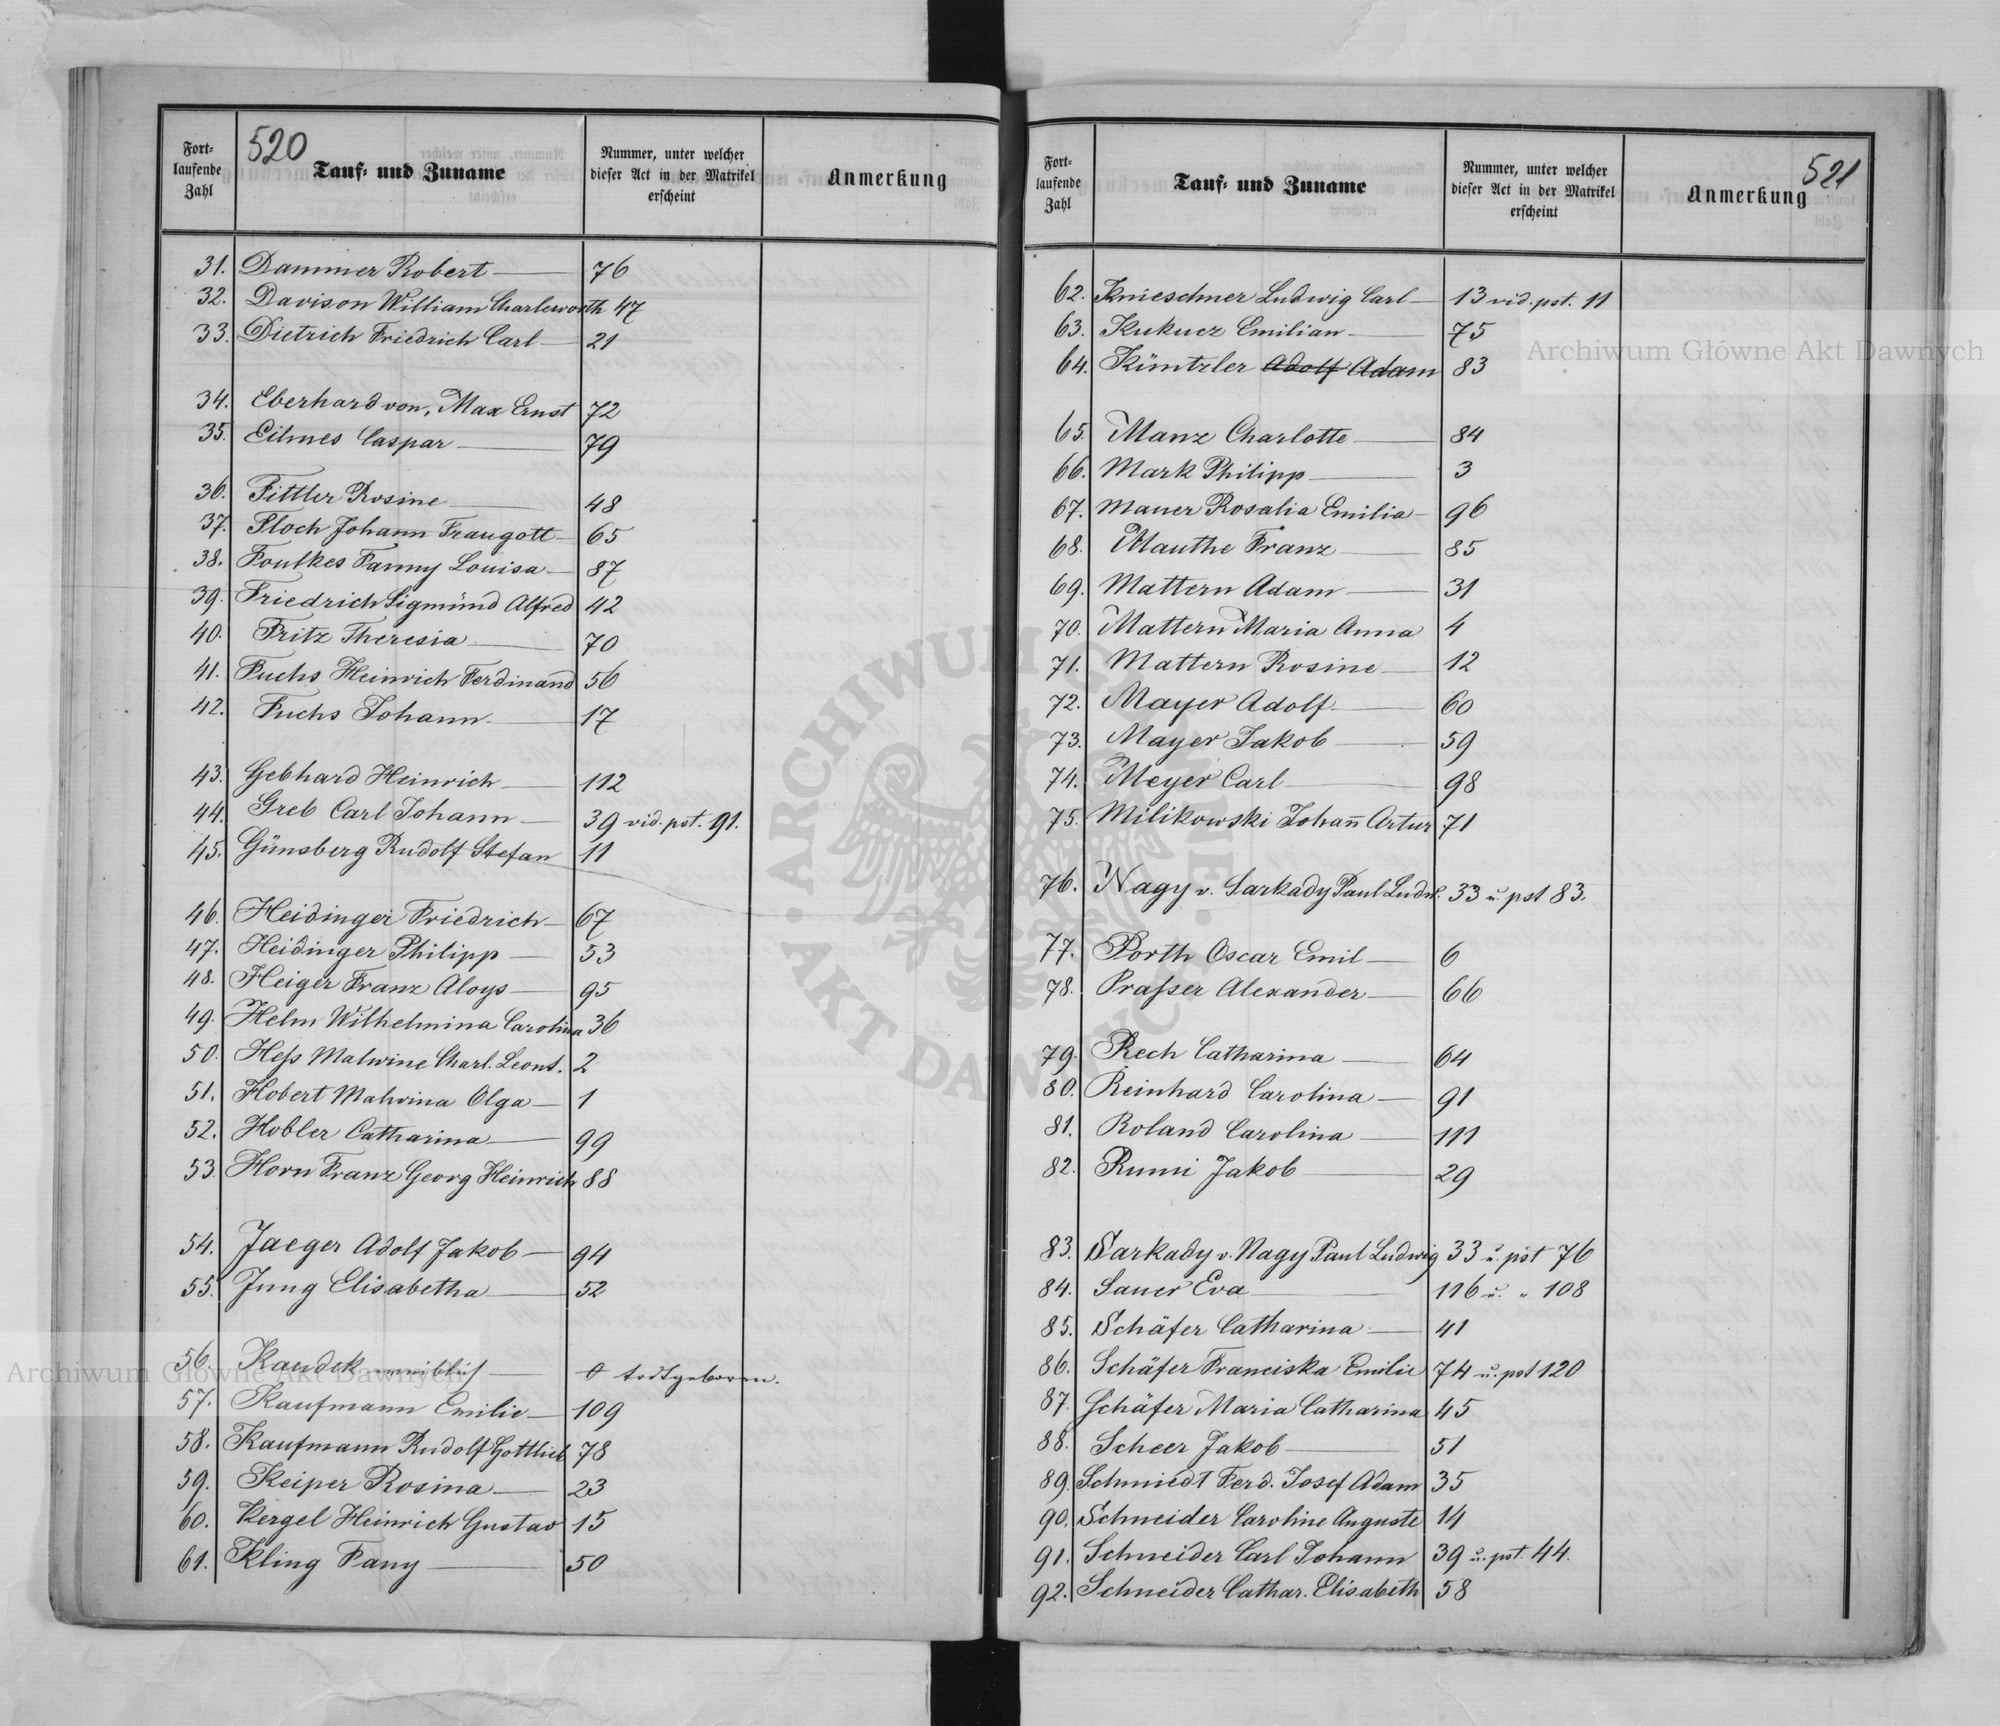 520
Fort-
laufende
Zahl
Tauf- und Zuname
Nummer, unter welcher
dieser Act in der Matrikel
erscheint
Anmerkung
31. Dammer Robert — 76
32. Davison William Charleworth 47
33. Dietrich Friedrich Carl — 21
34. Eberhard von, Max Ernst 72
35. Eilmes Caspar — 79
36. Fittler Rosine — 48
37. Floch Johann Traugott — 65
38. Foulkes Fanny Louisa — 87
39. Friedrich Sigmünd Alfred 42
40. Fritz Theresia — 70
41. Fuchs Heinrich Ferdinand 56
42. Fuchs Johann — 17
43. Gebhard Heinrich — 112
44. Greb Carl Johann — 39 vid. pst. 91.
45. Günsberg Rudolf Stefan 11
46. Heidinger Friedrich — 67
47. Heidinger Philipp — 53
48. Heiger Franz Aloys — 95
49. Helm Wilhelmina Carolina 36
50. Heſs Malwine Charl. Leont. 2
51. Hobert Malwina Olga — 1
52. Hobler Catharina — 99
53. Horn Franz Georg Heinrich 88
54. Jaeger Adolf Jakob — 94
55. Jung Elisabetha — 52
56. Kaudek weiblich — todtgeboren.
57. Kaufmann Emilie — 109
58. Kaufmann Rudolf Gottlieb 78
59. Keiper Rosina — 23
60. Kergel Heinrich Gustav 15
61. Kling Fany — 50
521
Fort-
laufende
Zahl
Tauf- und Zuname
Nummer, unter welcher
dieser Act in der Matrikel
erscheint
Anmerkung
62. Knieschner Ludwig Carl — 13 vid. pst. 11
63. Kukucz Emilian — 75
64. Küntzler Adolf Adam 83
65. Manz Charlotte — 84
66. Mark Philipp — 3
67. Mauer Rosalia Emilia — 96
68. Mauthe Franz — 85
69. Mattern Adam — 31
70. Mattern Maria Anna 4
71. Mattern Rosine — 12
72. Mayer Adolf — 60
73. Mayer Jakob — 59
74. Meyer Carl — 98
75. Milikowski Johan̄ Artur 71
76. Nagy v. Sarkady Paul Ludw. 33 u. pst 83.
77. Porth Oscar Emil — 6
78. Praſser Alexander — 66
79. Rech Catharina — 64
80. Reinhard Carolina — 91
81. Roland Carolina — 111
82. Rumi Jakob — 29
83. Sarkady v. Nagy Paul Ludwig 33 u. pst 76
84. Sauer Eva — 116 u. " 108
85. Schäfer Catharina — 41
86. Schäfer Franciska Emilie 74 u. pst 120
87. Schäfer Maria Catharina 45
88. Scheer Jakob — 51
89. Schmiedt Ferd. Josef Adam 35
90. Schneider Caroline Auguste 14
91. Schneider Carl Johann 39 u. pst. 44.
92. Schneider Cathar. Elisabeth 58
Archiwum Główne Akt Dawnych
Archiwum Główne Akt Dawnych